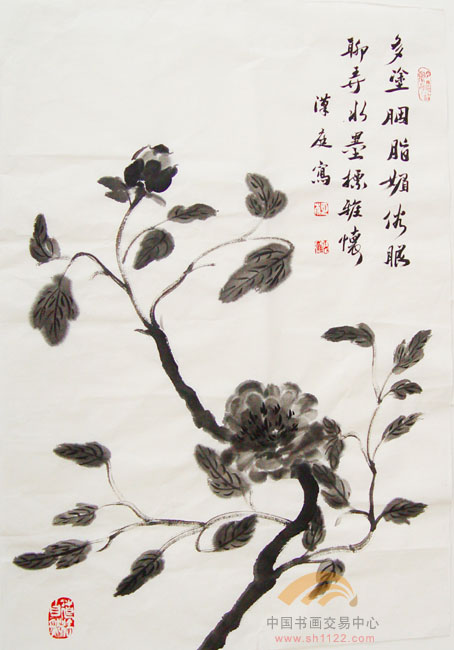 多塗胭脂媚俗眼
聊弄水墨標雅懷
漢庭寫
中国书画交易中心
www.sh1122.com